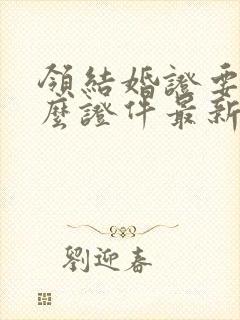 領結婚證要
麼證件最新
劉迎春